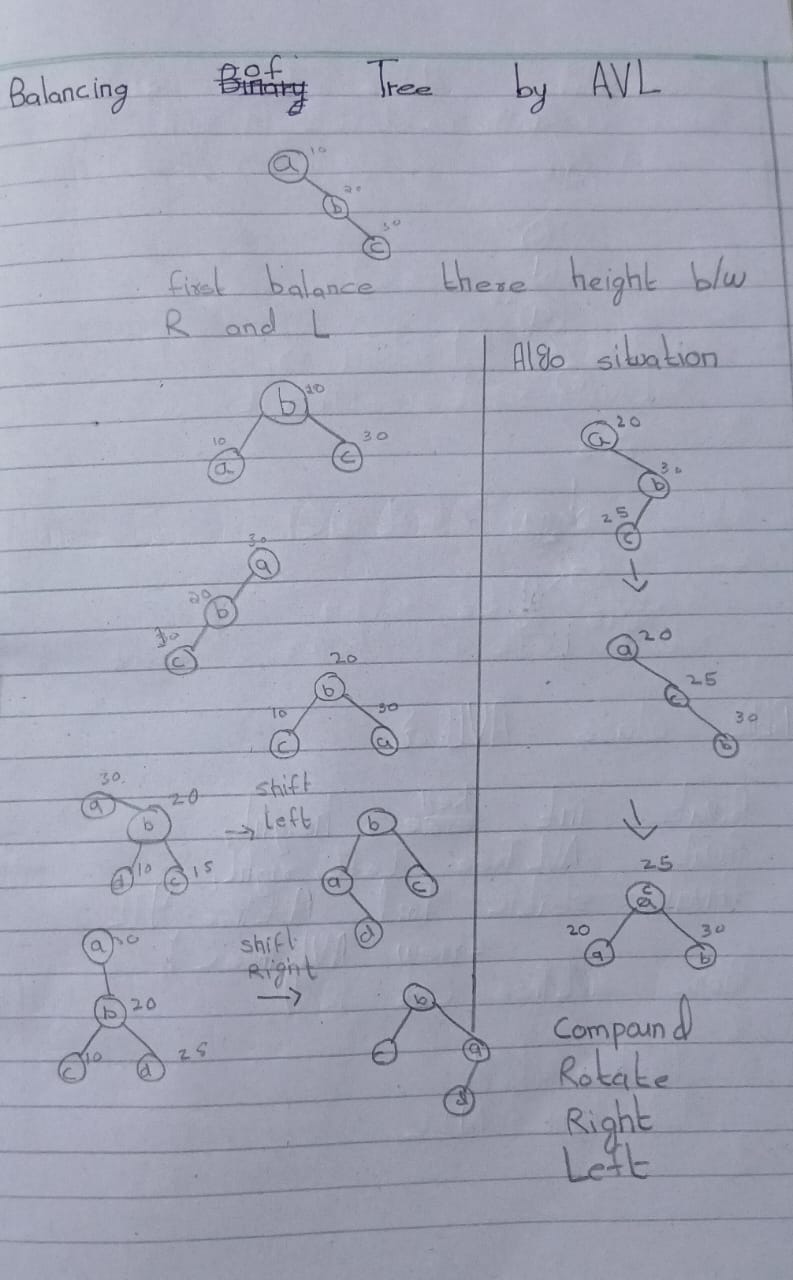 Balancing of Tree by AVL
a 10
b 20
c 30
first balance there height b/w
R and L
b 20
10 a
c 30
30 a
20 b
c
20
b
10 c
30 a
30 a
20 b
d 10
c 15
shift
→ Left
b
a
c
d
a 30
b 20
c 10
d 25
shift
Right
→
b
c
a
d
Algo situation
a 20
30 b
25 c
↓
a 20
c 25
30 b
↓
25
c
20 a
30 b
Compound
Rotate
Right
Left